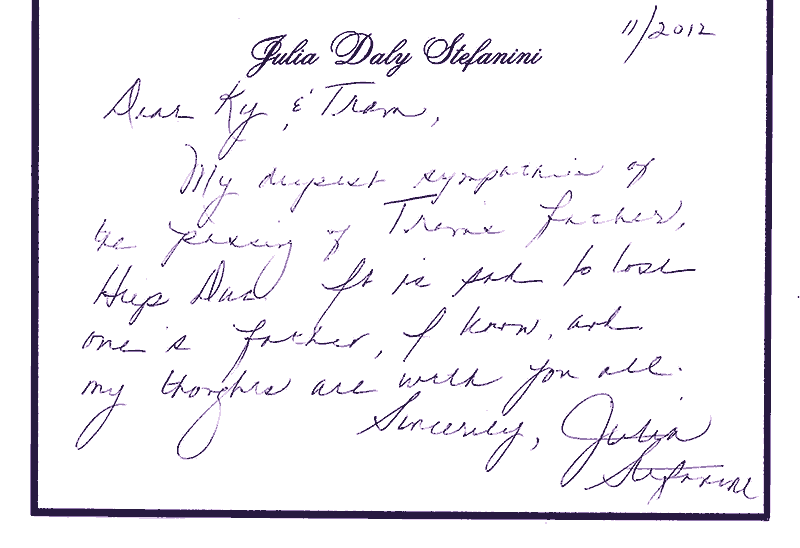 11/2012
Julia Daly Stefanini
Dear Ky & Tram,
My deepest sympathie of
the passing of Tram's father,
Hiep Dao. It is sad to lose
one's father, I know, and
my thoughts are with you all.
Sincerely, Julia
Stefanini